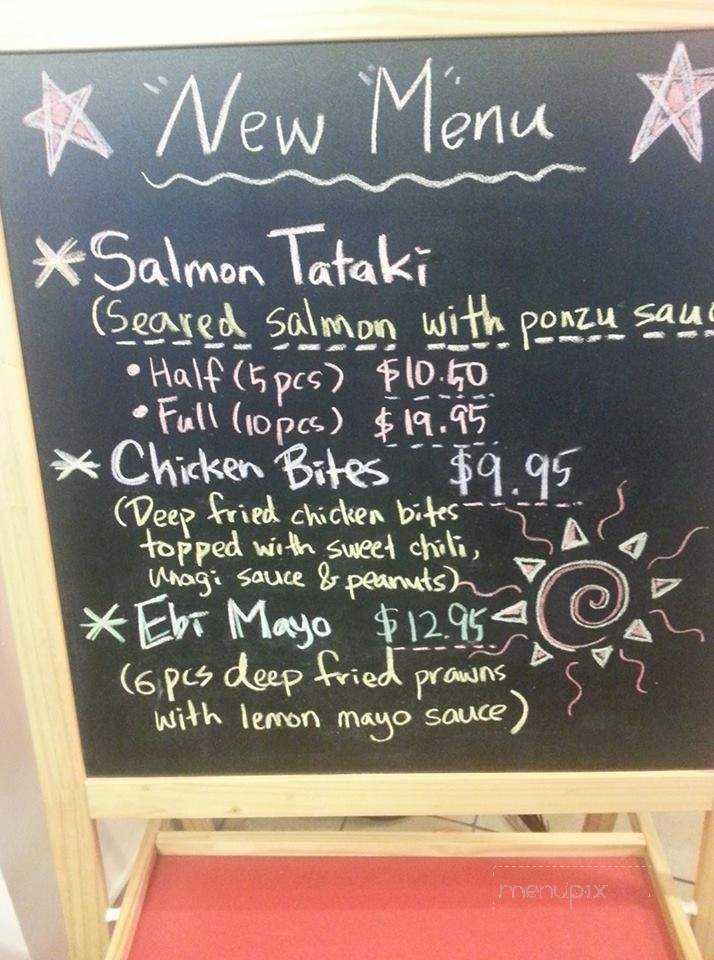 "New "Menu"
* Salmon Tataki
(Seared salmon with ponzu sauc
• Half (5 pcs) $10.50
• Full (10 pcs) $19.95
* Chicken Bites $9.95
(Deep fried chicken bites
topped with sweet chili,
Unagi sauce & peanuts)
* Ebi Mayo $12.95
(6 pcs deep fried prawns
with lemon mayo sauce)
menupix